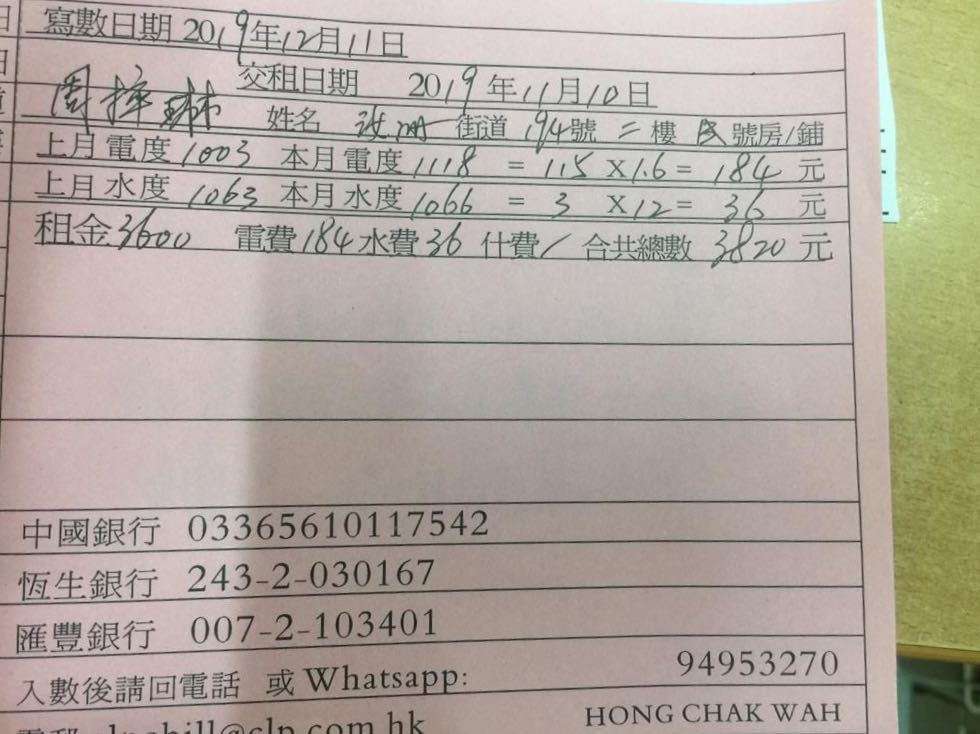 寫數日期 2019年12月11日
交租日期 2019年11月10日
周 姓名 街道 194號 二樓 號房/鋪
上月電度 1003 本月電度 1118 = 115 X1.6= 184 元
上月水度 1063 本月水度 1066 = 3 X12= 36 元
租金3600 電費184水費36 什費/ 合共總數 3820 元
中國銀行 03365610117542
恆生銀行 243-2-030167
匯豐銀行 007-2-103401
入數後請回電話 或 Whatsapp: 94953270
HONG CHAK WAH